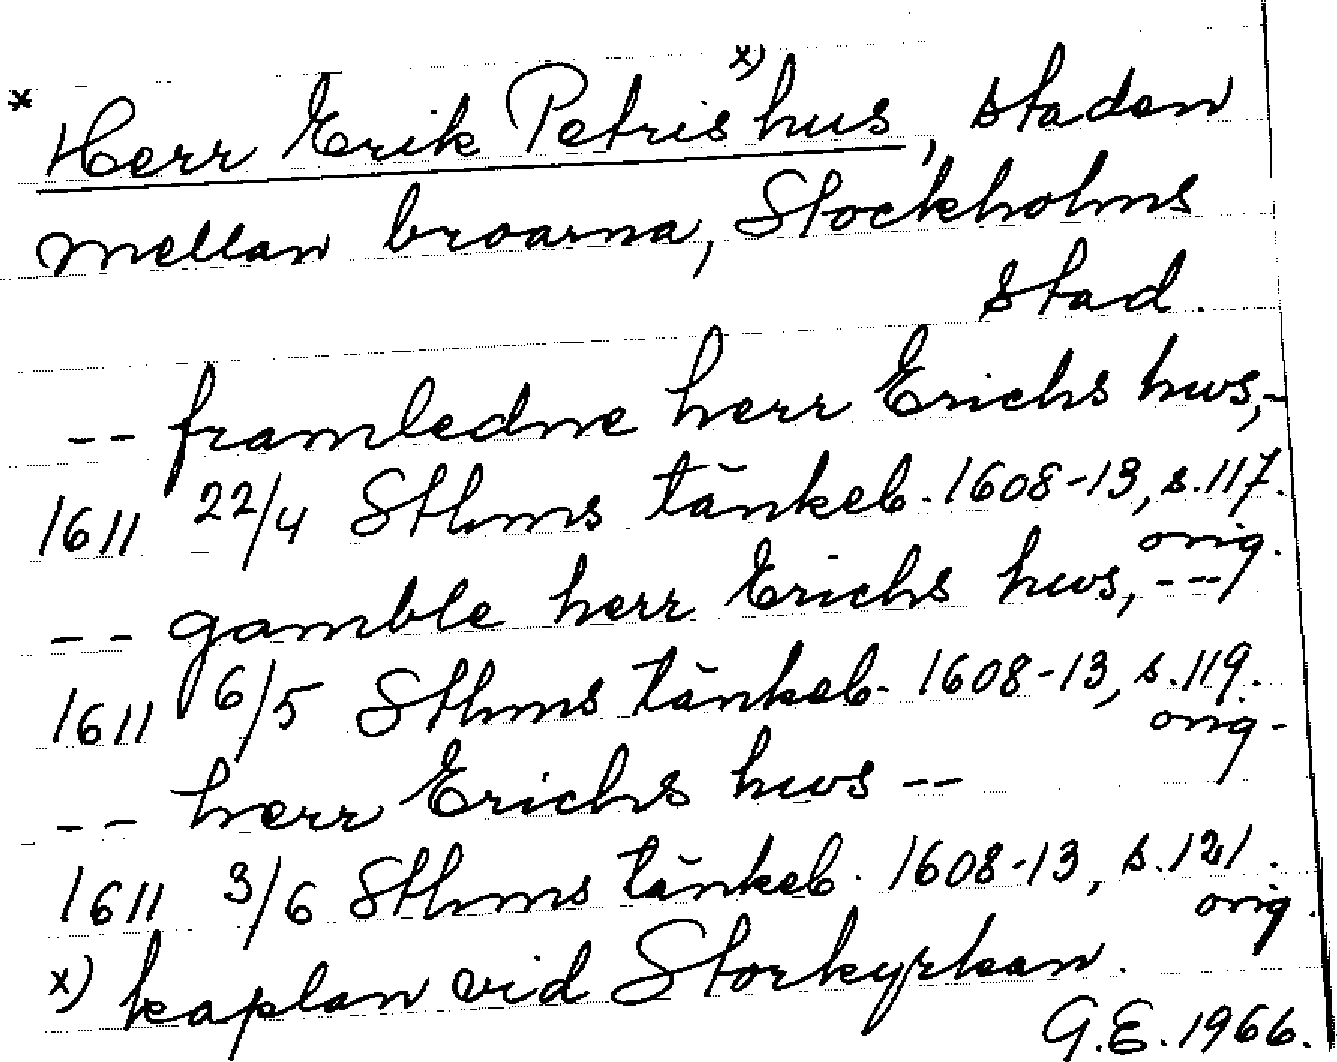 * Herr Erik Petris x) hus, staden
mellan broarna, Stockholms
stad.
-- framledne herr Erichs hws,-
1611 22/4 Sthms tänkeb. 1608-13, s.117.
orig.
-- gamble herr Erichs hws, ---
1611 6/5 Sthms tänkeb. 1608-13, s.119.
orig.
-- herr Erichs hws --
1611 3/6 Sthms tänkeb. 1608-13, s.121.
orig.
x) kaplan vid Storkyrkan.
G.E. 1966.